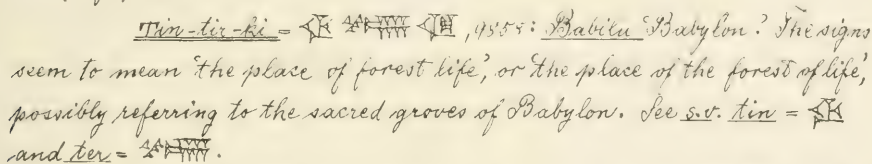 Tin-tir-ki = 𒁷 𒌁 𒆠, 9858: Babilu 'Babylon'. The signs
seem to mean 'the place of forest life', or 'the place of the forest of life',
possibly referring to the sacred groves of Babylon. See s.v. tin = 𒁷
and ter = 𒌁.